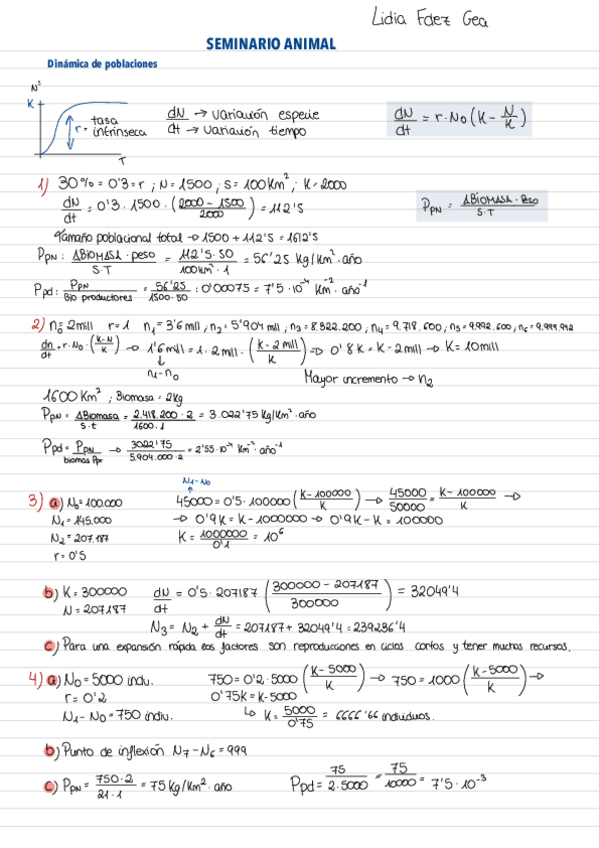 Lidia Fdez Gea
SEMINARIO ANIMAL
Dinámica de poblaciones
Nº
K
r = tasa intrínseca
T
dN → variación especie
dt → variación tiempo
dN/dt = r·N0 (K - N/K)
1) 30% = 0'3 = r ; N = 1500 ; S = 100 Km² ; K = 2000
dN/dt = 0'3 · 1500 · (2000 - 1500 / 2000) = 112'5
PPN = ΔBIOMASA · peso / S·T
Tamaño poblacional total → 1500 + 112'5 = 1612'5
PPN : ΔBIOMASA · peso / S·T = 112'5 · 50 / 100Km² · 1 = 56'25 Kg/Km² · año
Ppd : PPN / Bio productores = 56'25 / 1500·50 : 0'00075 = 7'5 · 10⁻⁴ Km⁻² · año⁻¹
2) n0 = 2mill r = 1 n1 = 3'6 mill , n2 = 5'904 mill , n3 = 8.322.200 , n4 = 9.718.600 ; n5 = 9.992.600 , n6 = 9.999.992
dn/dt = r·N0 · (K-N/K) → 1'6 mill = 1 · 2 mill · (K - 2 mill / K) => 0'8K = K - 2 mill → K = 10 mill
n1 - n0
Mayor incremento → n2
1600 Km² , Biomasa = 2Kg
PPN = ΔBiomasa / S·t = 2.418.200 · 2 / 1600 · 1 = 3.022'75 Kg/Km² · año
Ppd = PPN / biomas Ppr → 3022'75 / 5.904.000·2 = 2'55·10⁻⁴ Km⁻² · año⁻¹
N1-N0
3) a) N0 = 100.000 45000 = 0'5 · 100000 (K-100000 / K) → 45000 / 50000 = K - 100000 / K →
N1 = 145.000 → 0'9K = K - 1000000 → 0'9K - K = 100000
N2 = 207.187 K = 1000000 / 0'1 = 10⁶
r = 0'5
b) K = 300000 dN/dt = 0'5 · 207187 (300000 - 207187 / 300000) = 32049'4
N = 207187
N3 = N2 + dN/dt = 207187 + 32049'4 = 239236'4
c) Para una expansión rápida los factores son reproducciones en ciclos cortos y tener muchos recursos.
4) a) N0 = 5000 indiv. 750 = 0'2 · 5000 (K - 5000 / K) → 750 = 1000 (K - 5000 / K) →
r = 0'2 0'75K = K - 5000
N1 - N0 = 750 indiv. ↳ K = 5000 / 0'75 = 6666'66 individuos.
b) Punto de inflexión N7 - N6 = 999
c) PPN = 750·2 / 21·1 = 75 Kg/Km² · año Ppd = 75 / 2·5000 = 75 / 10000 = 7'5·10⁻³